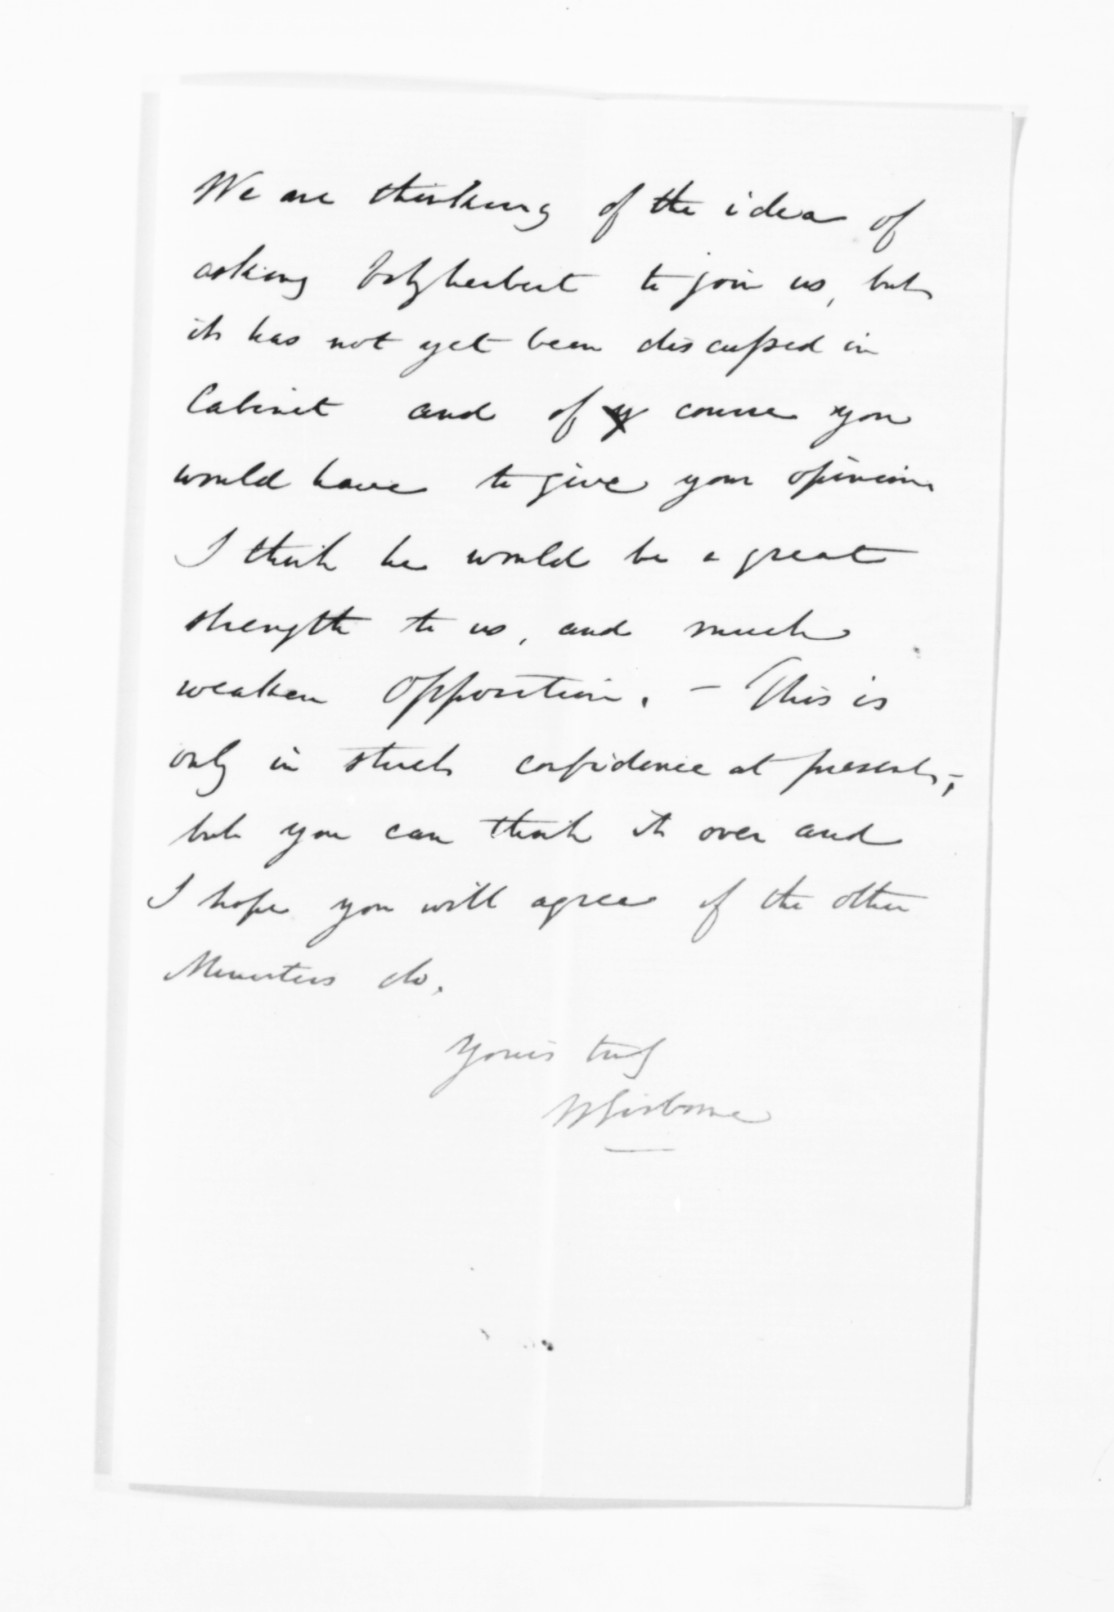 We are thinking of the idea of
asking Fitzherbert to join us, but
it has not yet been discussed in
Cabinet and of course you
would have to give your opinion
I think he would be a great
strength to us, and much
weaken opposition. – This is
only in strict confidence at present,–
but you can think it over and
I hope you will agree if the other
Ministers do.
Yours truly
WGisborne